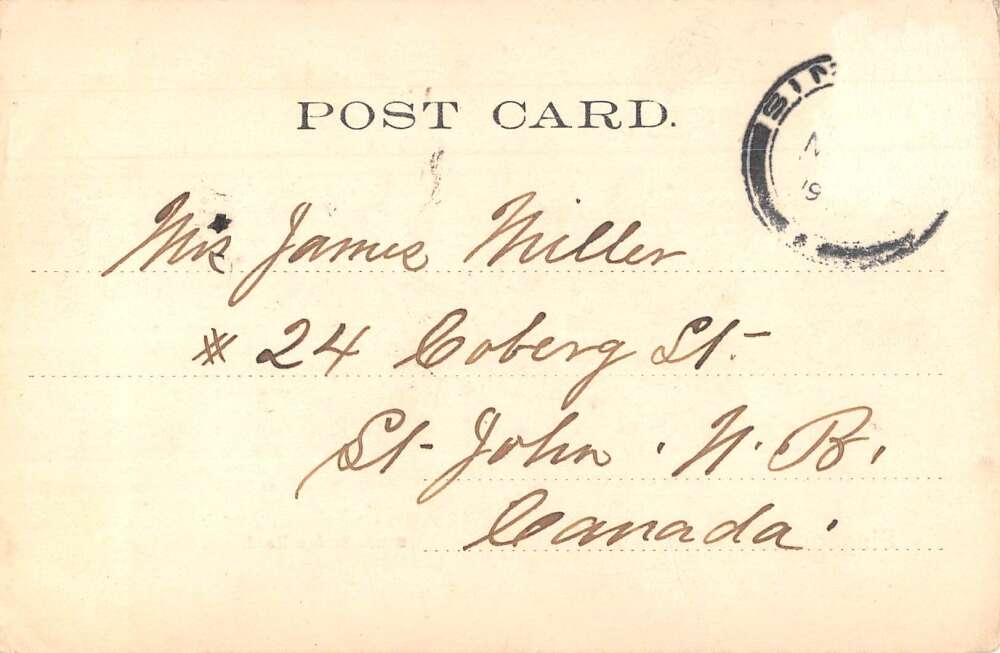 POST CARD.
SIN
19
Mrs James Miller
# 24 Coberg St-
St- John. N. B.
Canada.